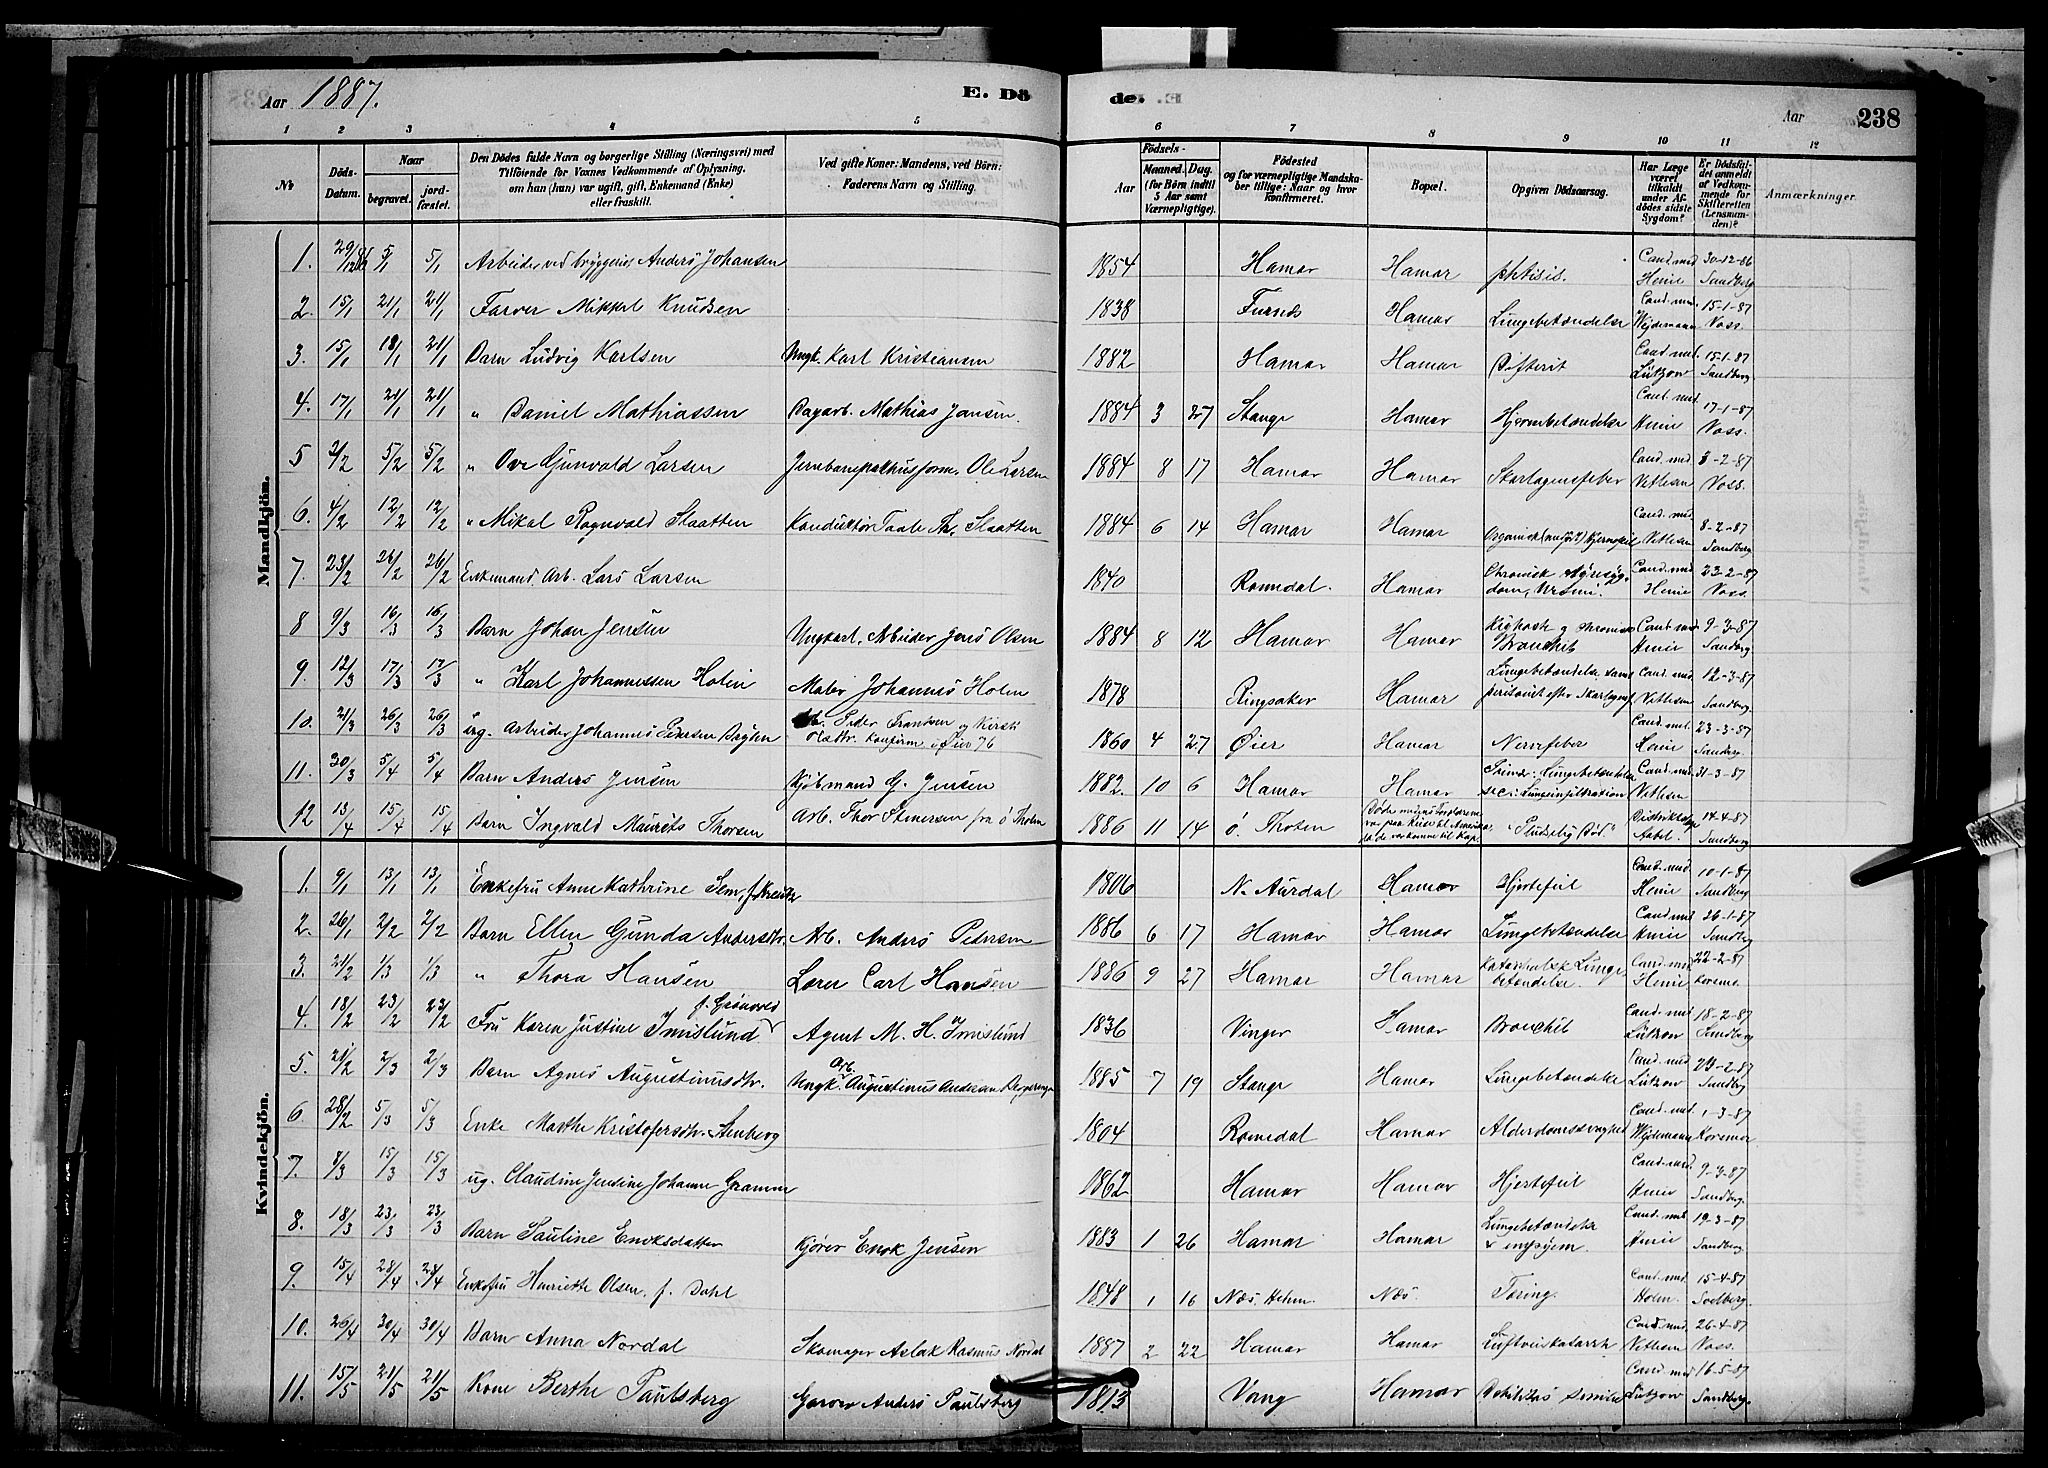 Aar 1887. E. Dö de. Aar 238
1 2 3 4 5 6 7 8 9 10 11 12
No Döds-Datum. Naar begravet. jord-fæstet. Den Dödes fulde Navn og borgerlige Stilling (Næringsvei) med Tilföiende for Voxnes Vedkommende af Oplysning, om han (hun) var ugift, gift, Enkemand (Enke) eller fraskilt. Ved gifte Koner: Mandens, ved Börn: Faderens Navn og Stilling. Födsels- Aar Maaned. Dag. (for Börn indtil 5 Aar samt Værnepligtige). Födested og for værnepligtige Mandskaber tillige: Naar og hvor konfirmeret. Bopæl. Opgiven Dödsaarsag. Har Læge været tilkaldt under Afdödes sidste Sygdom? Er Dödsfaldet anmeldt af Vedkommende for Skifteretten (Lensmanden)? Anmærkninger.
Mandkjön.
1. 29/12 86 5/1 5/1 Arbeider ved bryggeriet Anders Johansen 1854 Hamar Hamar phtisis. Cand. med Henie 30-12-86 Sandberg
2. 15/1 21/1 21/1 Farver Mikkel Knudsen 1838 Furnes Hamar Lungebetændelse Cand. med. Wejdemann 15-1-87 Voss.
3. 15/1 18/1 21/1 Barn Ludvig Karlsen Ungk. Karl Kristiansen 1882 Hamar Hamar Difterit Cand. med. Lützow 15-1-87 Sandberg.
4. 17/1 21/1 21/1 " Daniel Mathiassen Dagarb. Mathias Jansen. 1884 3 27 Stange Hamar Hjernebetændelse Cand. med. Henie 17-1-87 Voss.
5 2/2 5/2 5/2 " Ove Gunvald Larsen Jernbanepakhusform. Ole Larsen 1884 8 17 Hamar Hamar Skarlagensfeber Cand. med Vethesen 3-2-87 Voss.
6. 4/2 12/2 12/2 " Mikal Ragnvald Slaatten Konduktør Taale Th. Slaatten 1884 6 14 Hamar Hamar Organisk (medfødt) Hjernefeil Cand. med Vethesen 8-2-87 Sandberg
7. 23/2 26/2 26/2 Enkemand Arb. Lars Larsen 1840 Romedal. Hamar Chronisk Nyresygdom, Uræmi. Cand. med Henie 23-2-87 Voss.
8 9/3 16/3 16/3 Barn Johan Jensen Ungkarl. Arbeider Jens Olsen 1884 8 12 Hamar Hamar Kighoste og chronisk Bronchit Cand. med Henie 9-3-87 Sandberg.
9. 12/3 17/3 17/3 " Karl Johannessen Holen Maler Johannes Holen 1878 Ringsaker Hamar Lungebetændelse samt peritonit efter Skarlagensf. Cand. med Vethesen 12-3-87 Sandberg.
10. 21/3 26/3 26/3 ug. Arbeider Johannes Pedersen Bryhn Arb. Peder Frandsen og Kirsti Olsdtr. Konfirm. i Øier 76 1860 4 27 Øier Hamar Nervefeber Cand. med. Henie 23-3-87 Sandberg
11. 30/3 5/4 5/4 Barn Anders Jensen Kjøbmand G. Jensen 1882. 10 6 Hamar Hamar Primær: Lungebetændelse sec: Lungeinfiltration Cand. med Vethesen 31-3-87
12 13/4 15/4 15/4 Barn Ingvald Maurits Thorsen Arb. Thor Stenersen fra Ø Thoten 1886 11 14 Ø. Thoten Døde medens Forældrene var paa Reise til Amerika "Pludselig Død" Distriktslæge Aabel. 14-4-87 Sandberg
Kvindekjön.
1. 9/1 13/1 13/1 Enkefru Anne Kathrine Sem, f. Kreutz 1806 N. Aurdal Hamar Hjertefeil Cand. med Henie 10-1-87 Sandberg
2. 26/1 2/2 2/2 Barn Ellen Gunda Andersdtr. Arb. Anders Pedersen 1886 6 17 Hamar Hamar Lungebetændelse Cand. med Henie 26-1-87 Sandberg
3. 21/2 1/3 1/3 " Thora Hansen Lærer Carl Hansen 1886 9 27 Hamar Hamar Katarrhalsk Lungebetændelse. Cand. med. Henie 22-2-87 Korsmo.
4. 18/2 23/2 23/2 Fru Karen Justine Imislund f. Grønvold Agent M. H. Imislund 1836 Vinger Hamar Bronchit Cand. med Lützow 18-2-87 Sandberg
5. 21/2 2/3 2/3 Barn Agnes Augustinusdtr. Ungk. Arb. Augustinus Andersen 1885 7 19 Stange Hamar Lungebetændelse Cand. med Lützow 2-87 Sandberg
6. 28/2 5/3 5/3 Enke Marthe Kristofersdtr. Stenberg 1804 Romedal Hamar Alderdomssvaghed Cand. med. Wejdemann 1-3-87 Korsmo
7. 8/3 15/3 15/3 ug. Claudine Jensine Johanne Gramm 1862 Hamar Hamar Hjertefeil Cand. med. Henie 9-3-87 Sandberg.
8. 18/3 23/3 23/3 Barn Pauline Enoksdatter Kjører Enok Jensen 1883 1 26 Hamar Hamar Lungebetændelse & empyem. Cand. med. Henie 19-3-87 Sandberg.
9. 15/4 23/4 23/4 Enkefru Henriette Olsen, f. Dahl 1848 1 16 Næs. Hedm. Næs. Tæring. Cand. med. Holm. 15-4-87 Soelberg.
10. 26/4 30/4 30/4 Barn Anna Nordal Skomager Aslak Rasmus Nordal 1887 2 22 Hamar Hamar Luftveiskatarrh Cand. med. Vethesen 26-4-87 Voss.
11. 15/5 21/5 21/5 Kone Berthe Paulsberg Garver Anders Paulsberg 1813 Vang Hamar Debilitas senilis Cand. med Lützow 16-5-87 Sandberg.